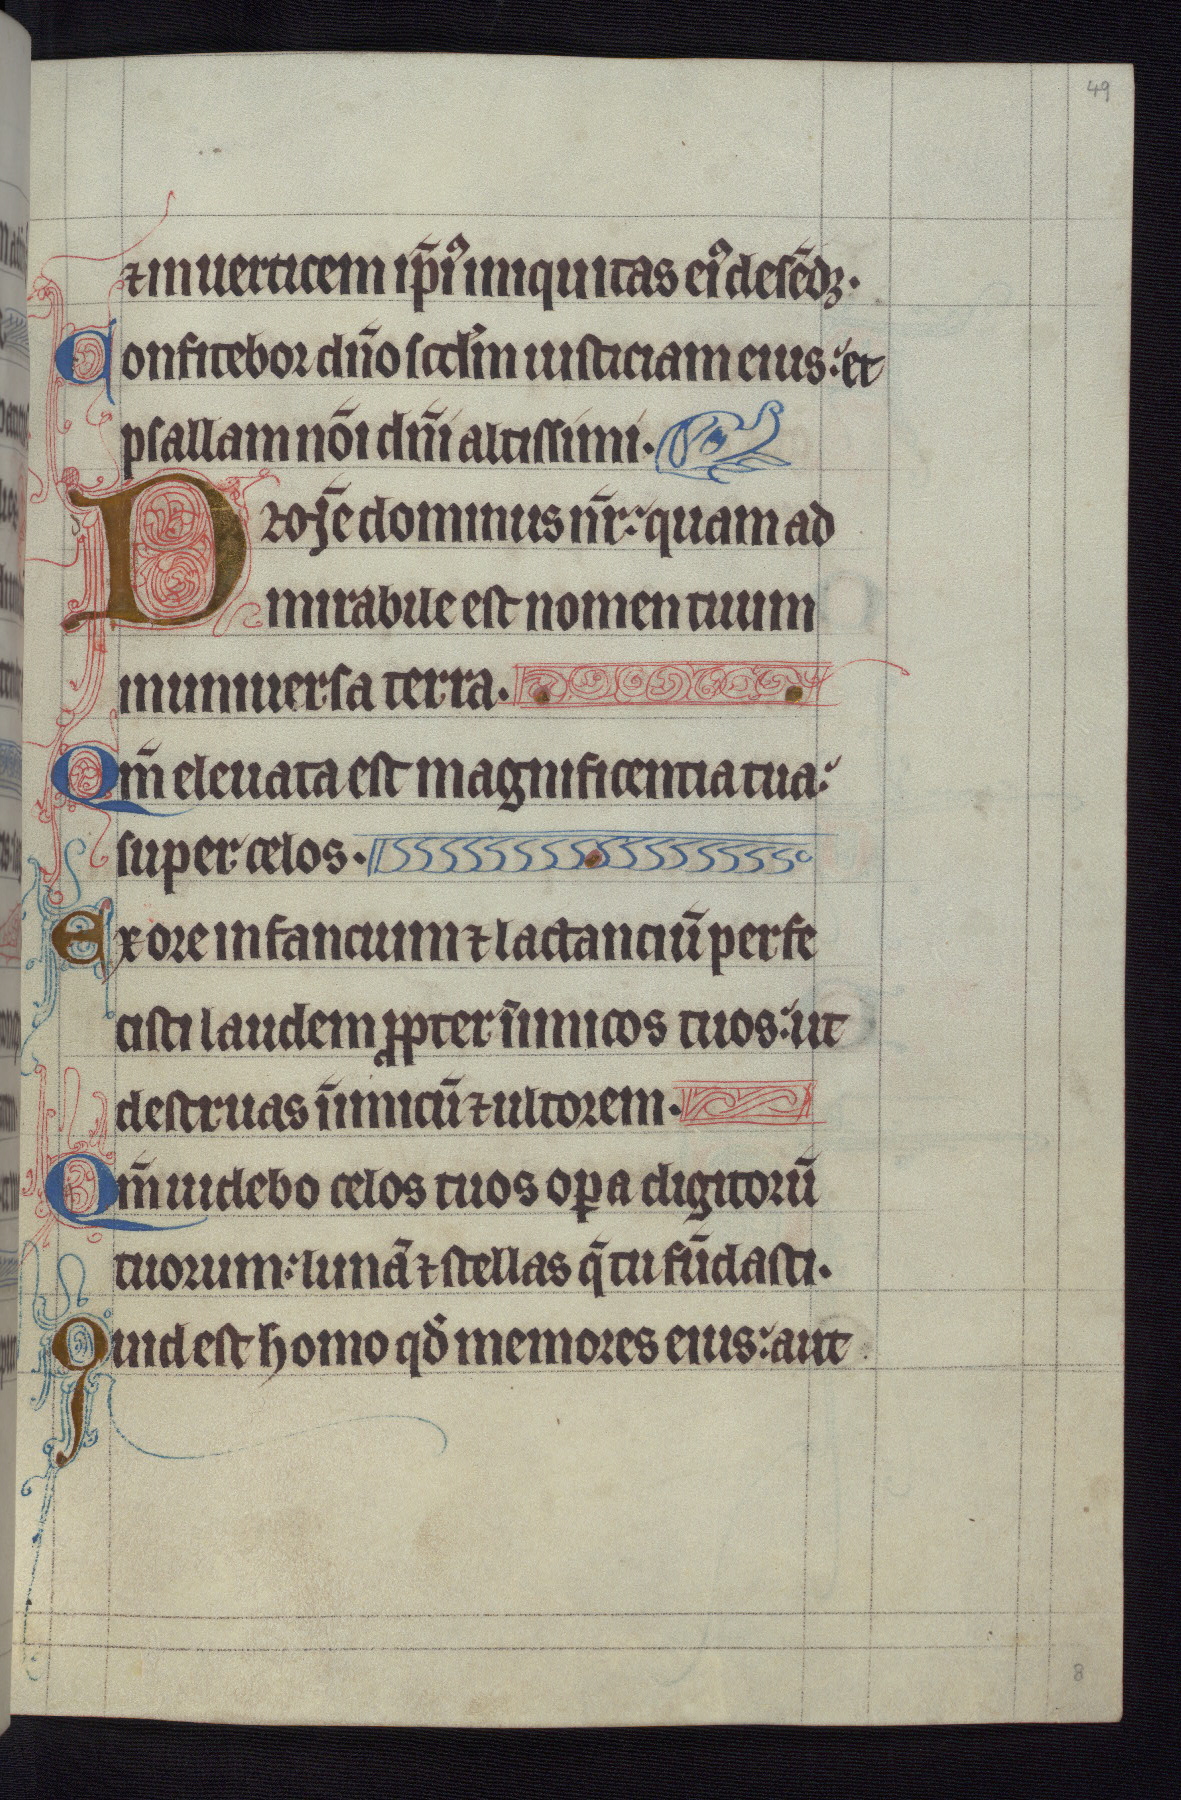 49
⁊ in uerticem ip̄iꝰ iniquitas eiꝰ desc̄dꝫ.
Confitebor dn̄o scd̓m iusticiam eius: et
psallam nōi dn̄i altissimi.
D
ne dominus nr̄: quam ad
mirabile est nomen tuum
in uniuersa terra.
Qm̄ eleuata est magnificentia tua:
super celos.
Ex ore infancium ⁊ lactanciū perfe
cisti laudem ꝓpter inimicos tuos: ut
destruas inimicū ⁊ ultorem.
Qm̄ uidebo celos tuos opa digitorū
tuorum: lunā ⁊ stellas q̄ tu fūdasti.
Quid est homo qđ memores eius: aut
8